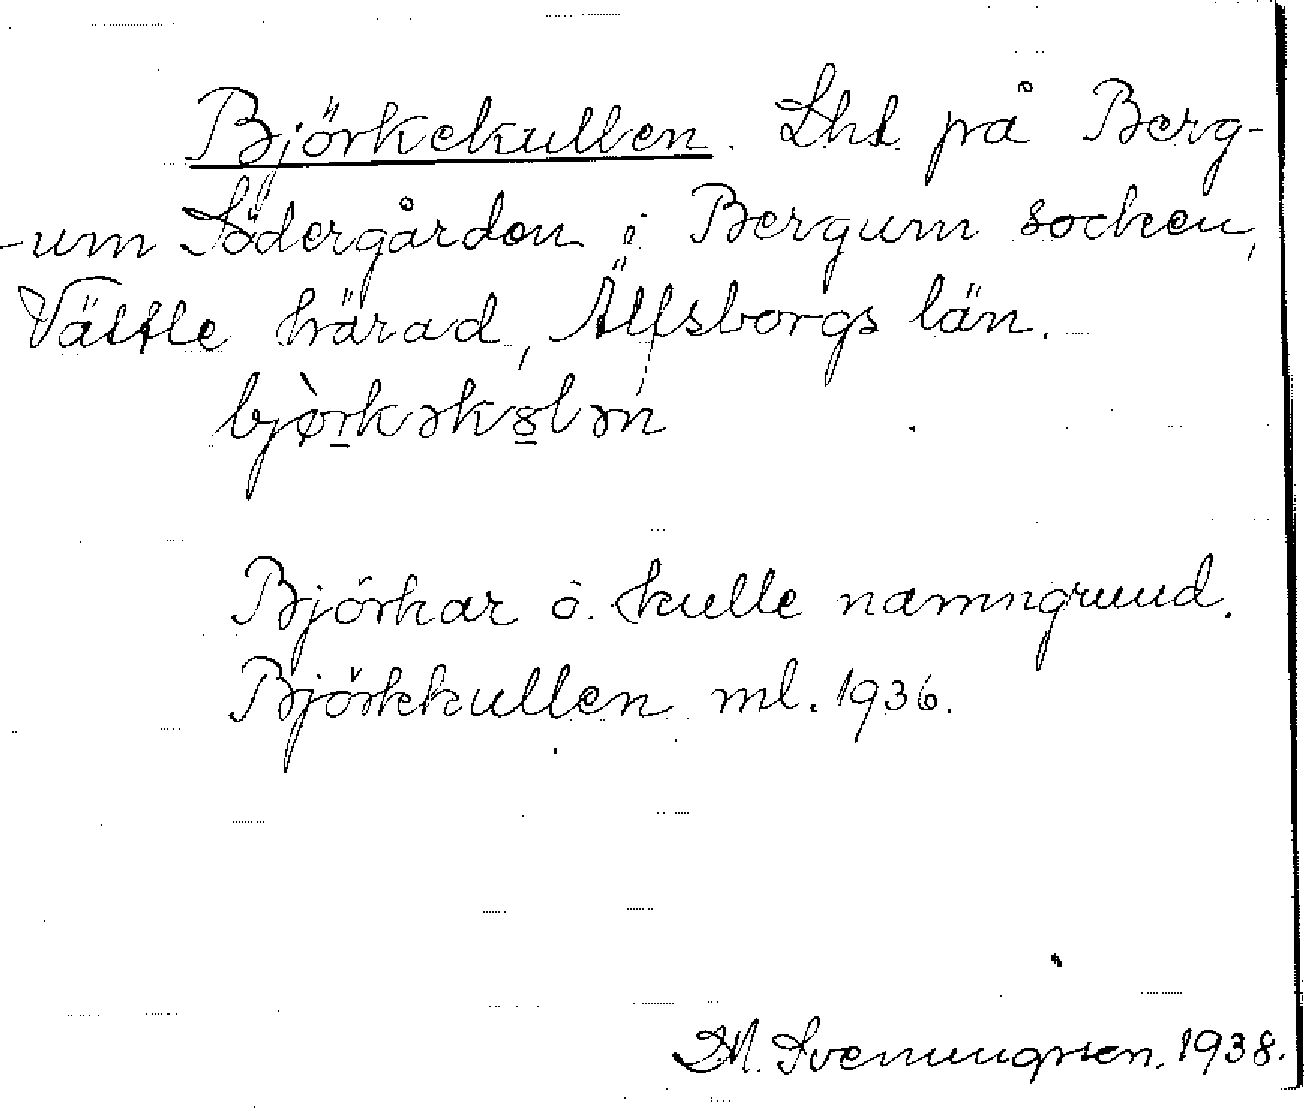 Björkekullen. Lht på Berg-
-um Södergården i Bergum socken,
Vättle härad, Älfsborgs län.
bjὸrkəkȣlən
Björkar o. kulle namngrund.
Björkkullen ml. 1936.
Svenungsson. 1938.